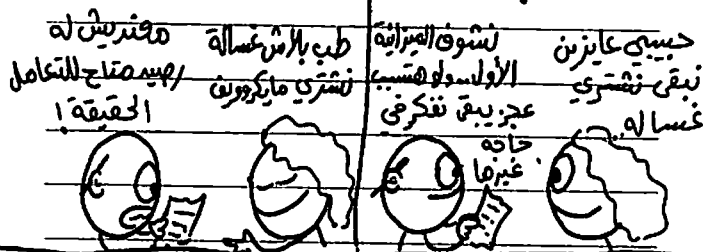 حبيبي عايزين
نبقى نشتري
غساله..
نشوف الميزانية
الأول سولو هتسبب
عجز يبقى نفكر في
حاجه
غيرها
طب بلاش غسالة
نشتري مايكروويف
مفنديش له
رصيد متاح للتعامل
الحقيقة !